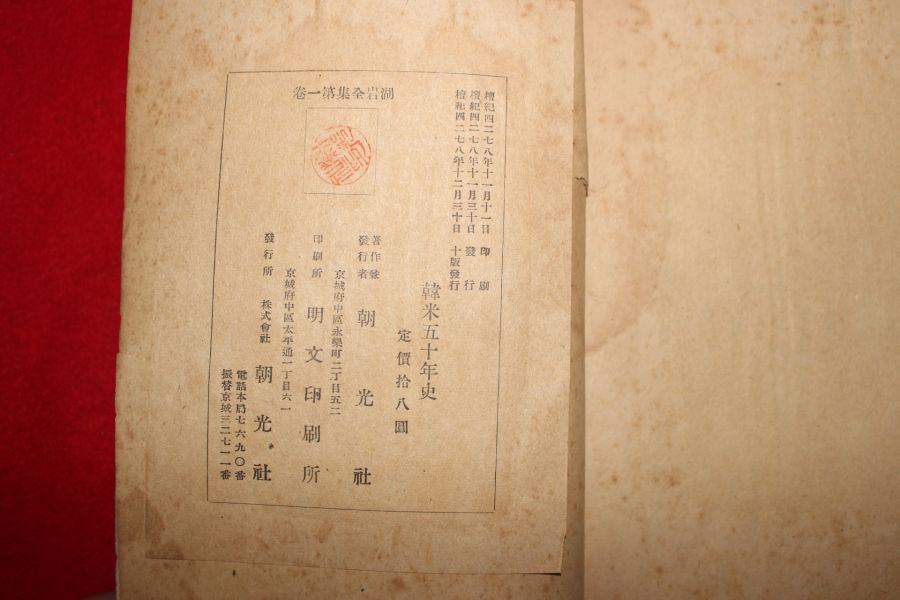 湖岩全集第一卷
檀紀四二七八年十一月十一日 印刷
檀紀四二七八年十一月三十日 發行
檀紀四二七八年十二月三十日 十版發行
韓米五十年史
定價拾八圓
著作兼
發行者 朝光社
京城府中區永樂町二丁目五二
印刷所 明文印刷所
京城府中區太平通一丁目六一
發行所 株式會社 朝光社
電話本局七六九〇番
振替京城三二七一一番